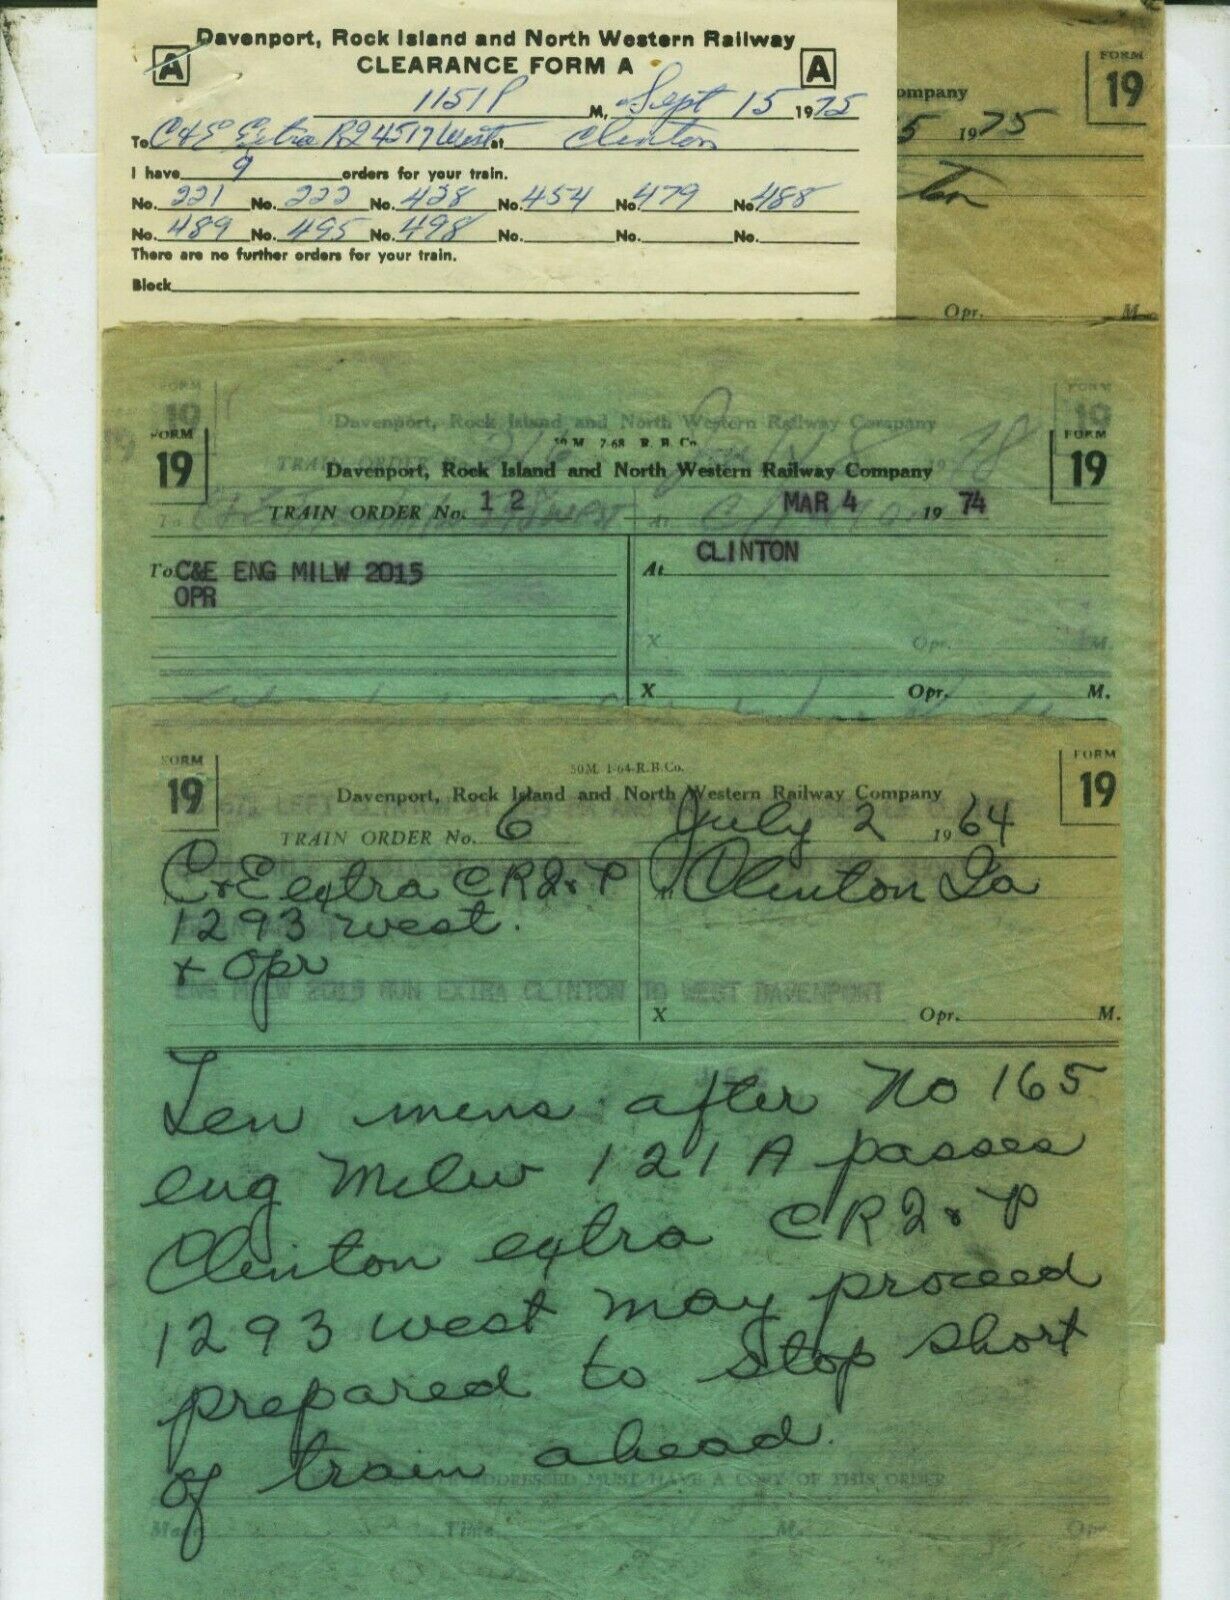 Davenport, Rock Island and North Western Railway
A CLEARANCE FORM A A
1151 P M, Sept 15 1975
To C&E Extra RI 4517 West at Clinton
I have 9 orders for your train.
No. 221 No. 222 No. 438 No. 454 No. 479 No. 488
No. 489 No. 495 No. 498 No. No. No.
There are no further orders for your train.
Block
FORM
19
ompany
5 1975
ton
Opr. M.
FORM 19
Davenport, Rock Island and North Western Railway Company
FORM 19
50 M 7-68 R. B. Co.
FORM 19
Davenport, Rock Island and North Western Railway Company
FORM 19
TRAIN ORDER No. 12 MAR 4 1974
To C&E ENG MILW 2015
OPR
At CLINTON
X Opr. M.
X Opr. M.
FORM 19
50M 1-64-R.B.Co.
FORM 19
Davenport, Rock Island and North Western Railway Company
TRAIN ORDER No. 6 July 2 1964
C&E extra CRI&P
1293 west.
& Opr
Clinton Ia
ENG MILW 2015 RUN EXTRA CLINTON TO WEST DAVENPORT
X Opr. M.
Ten mens after No 165
eng Milw 121 A passes
Clinton extra CRI&P
1293 west may proceed
prepared to stop short
of train ahead.
ADDRESSED MUST HAVE A COPY OF THIS ORDER
Made Time M. Opr